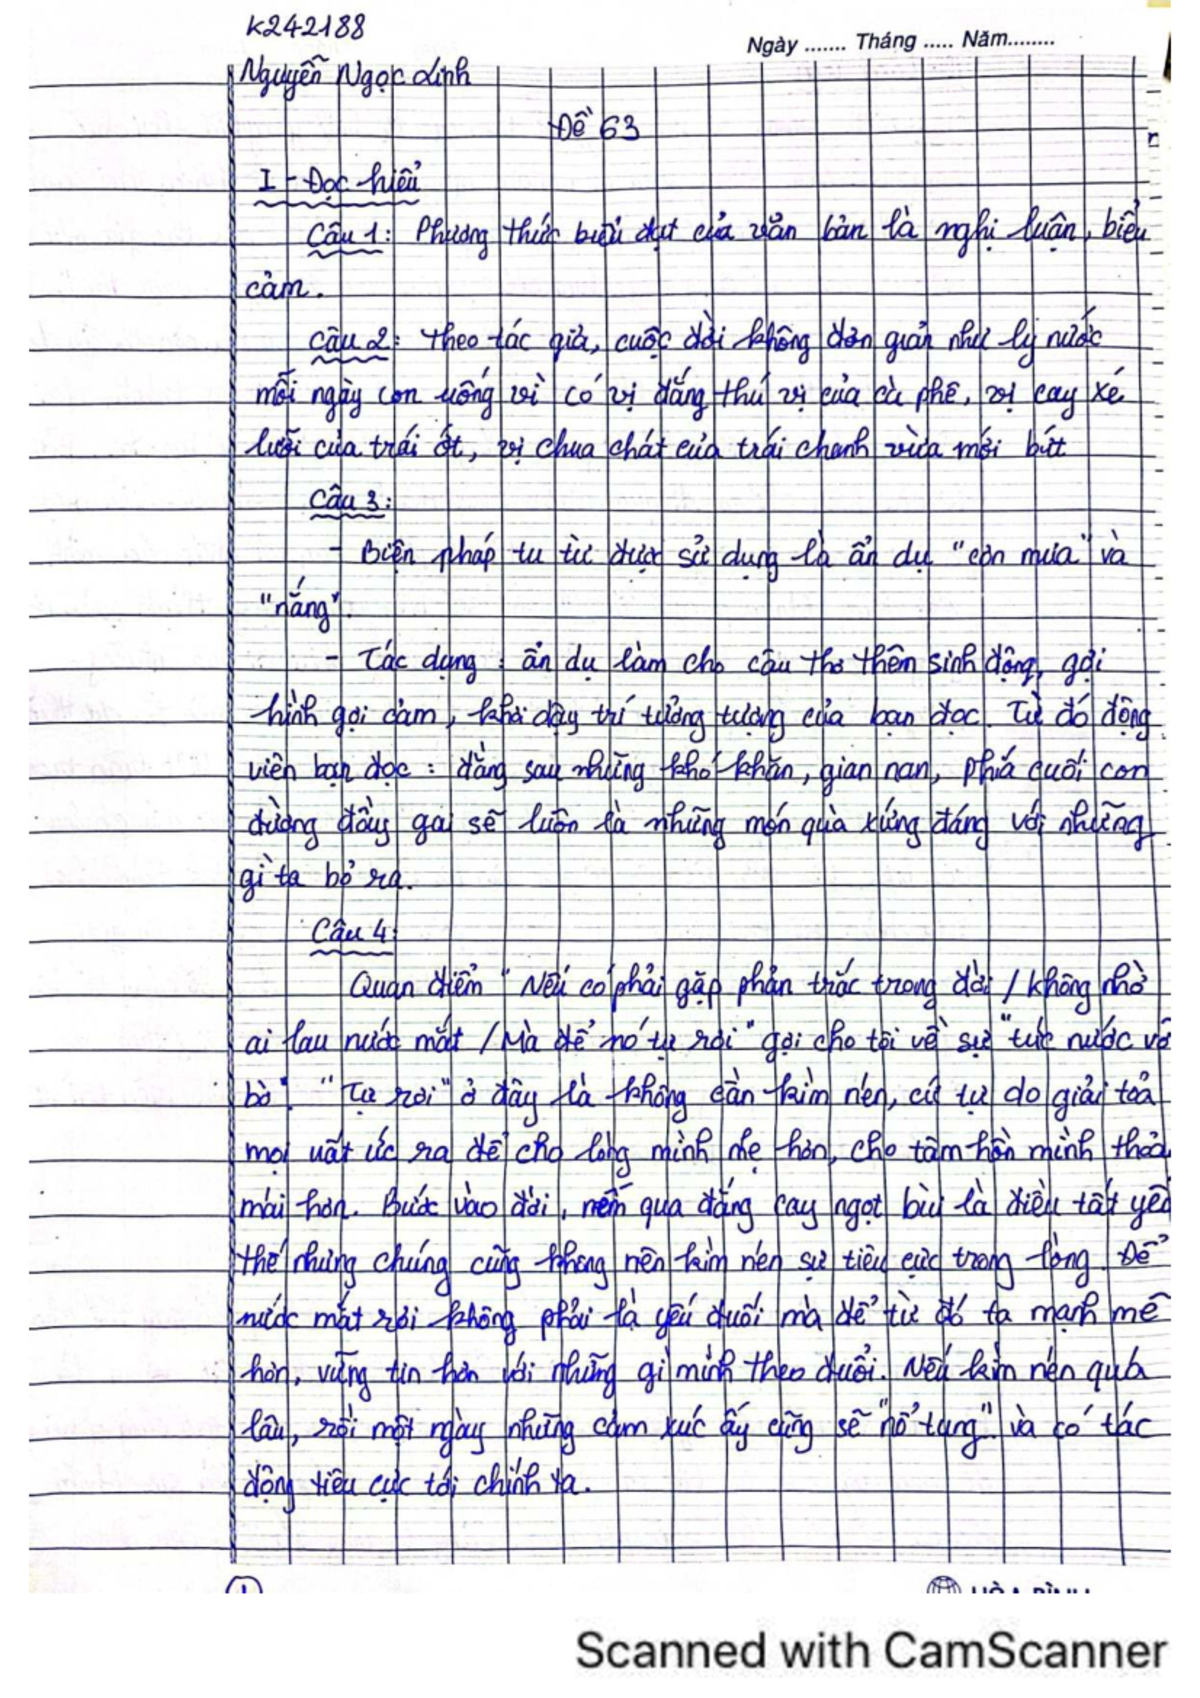 K242188
Ngày ....... Tháng ..... Năm........
Nguyễn Ngọc Linh
Đề 63
I - Đọc hiểu
Câu 1: Phương thức biểu đạt của văn bản là nghị luận, biểu
cảm.
Câu 2: Theo tác giả, cuộc đời không đơn giản như ly nước
mỗi ngày con uống vì có vị đắng thú vị của cà phê, vị cay xé
lưỡi của trái ớt, vị chua chát của trái chanh vừa mới bứt
Câu 3:
- Biện pháp tu từ được sử dụng là ẩn dụ "cơn mưa" và
"nắng".
- Tác dụng : ẩn dụ làm cho câu thơ thêm sinh động, gợi
hình gợi cảm, khơi dậy trí tưởng tượng của bạn đọc. Từ đó động
viên bạn đọc : đằng sau những khó khăn, gian nan, phía cuối con
đường đầy gai sẽ luôn là những món quà xứng đáng với những
gì ta bỏ ra.
Câu 4:
Quan điểm "Nếu có phải gặp phản trắc trong đời / Không nhờ
ai lau nước mắt / Mà để nó tự rơi" gợi cho tôi về sự "tức nước vỡ
bờ". "Tự rơi" ở đây là không cần kìm nén, cứ tự do giải toả
mọi uất ức ra để cho lòng mình nhẹ hơn, cho tâm hồn mình thoải
mái hơn. Bước vào đời, nếm qua đắng cay ngọt bùi là điều tất yếu
thế nhưng chúng cũng không nên kìm nén sự tiêu cực trong lòng. Để
nước mắt rơi không phải là yếu đuối mà để từ đó ta mạnh mẽ
hơn, vững tin hơn với những gì mình theo đuổi. Nếu kìm nén quá
lâu, rồi một ngày những cảm xúc ấy cũng sẽ "nổ tung" và có tác
động tiêu cực tới chính ta.
Scanned with CamScanner